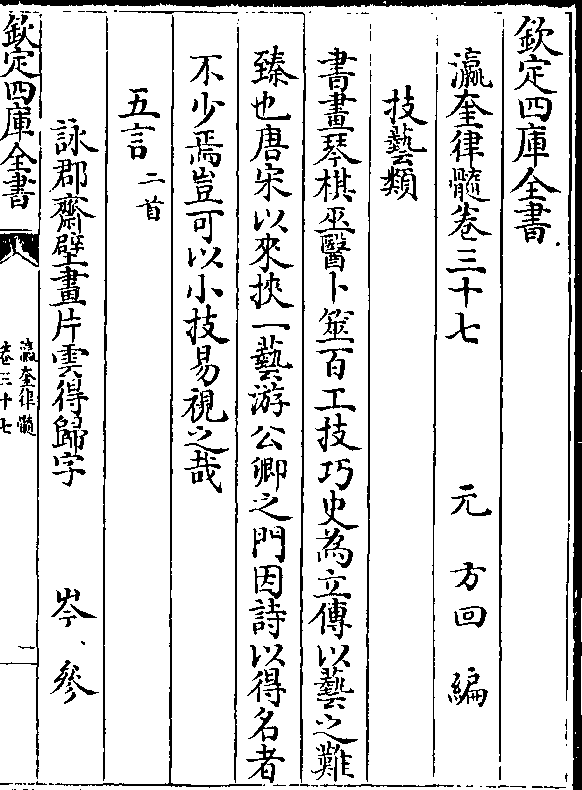 欽定四庫全書
瀛奎律髓卷三十七 元 方回 編
技藝類
書畫琴棋巫醫卜筮百工技巧史為立傳以藝之難
臻也唐宋以來挾一藝游公卿之門因詩以得名者
不少焉豈可以小技易視之哉
五言 二首
詠郡齋壁畫片雲得歸字 岑參
欽定四庫全書
瀛奎律髓
卷三十七
一